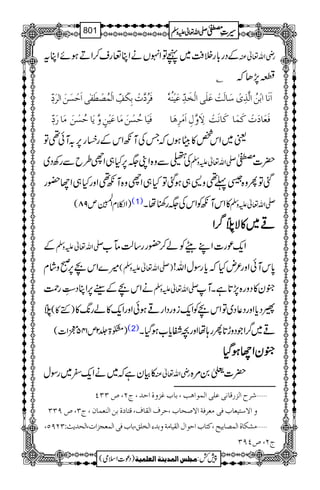 سیرتِ مصطفیٰ صلی اللہ تعالیٰ علیہ وسلم 801
رضی اللہ تعالیٰ عنہ کے دربار خلافت میں پہنچے تو انہوں نے اپنا تعارف کراتے ہوئے اپنا یہ
قطعہ پڑھا کہ
اَنَا ابْنُ الَّذِیْ سَالَتْ عَلَی الْخَدِّ عَیْنُہٗ فَرُدَّتْ بِکَفِّ الْمُصْطَفٰی اَحْسَنَ الرَّدِّ
فَعَادَتْ کَمَا کَانَتْ لِاَوَّلِ اَمْرِھَا فَیَا حُسْنَ مَا عَیْنٍ وَّ یَا حُسْنَ مَا رَدِّ
یعنی میں اس شخص کا بیٹا ہوں کہ جس کی آنکھ اس کے رخسار پر بہ آئی تھی تو
حضرت مصطفیٰ صلی اللہ تعالیٰ علیہ وسلم کی ہتھیلی سے وہ اپنی جگہ پر کیا ہی اچھی طرح سے رکھ دی
گئی تو پھر وہ جیسی پہلے تھی ویسی ہی ہو گئی تو کیا ہی اچھی وہ آنکھ تھی اور کیا ہی اچھا حضور
صلی اللہ تعالیٰ علیہ وسلم کا اس آنکھ کو اس کی جگہ رکھنا تھا۔(1) (الکلام المبین ص ۸۹)
قے میں کالا پلا گرا
ایک عورت اپنے بیٹے کو لے کر حضور رسالت مآب صلی اللہ تعالیٰ علیہ وسلم کے
پاس آئی اور عرض کیا کہ یا رسول اللہ! (صلی اللہ تعالیٰ علیہ وسلم) میرے اس بچے پر صبح و شام
جنون کا دورہ پڑتا ہے۔ آپ صلی اللہ تعالیٰ علیہ وسلم نے اس بچے کے سینے پر اپنا دستِ رحمت
پھیر دیا اور دعا دی تو اس بچے کو ایک زوردار قے ہوئی اور ایک کالے رنگ کا (کتے کا) پلا
قے میں گرا جو دوڑتا پھر رہا تھا اور بچہ شفایاب ہو گیا۔(2) (مشکوٰۃ جلد۲ ص۵۴۱ معجزات)
جنون اچھا ہو گیا
حضرت یعلیٰ بن مرہ رضی اللہ تعالیٰ عنہ کا بیان ہے کہ میں نے ایک سفر میں رسول
......شرح الزرقانی علی المواھب ، باب غزوة احد ، ج۲، ص ۴۳۳
و الاستیعاب فی معرفة الاصحاب ، حرف القاف، قتادة بن النعمان ، ج۳، ص ۳۳۹
......مشکاة المصابیح ، کتاب احوال القیامة وبدء الخلق، باب فی المعجزات، الحدیث: ۵۹۲۳،
ج۲، ص ۳۹۴
پیش کش: مجلس المدینة العلمیة (دعوتِ اسلامی)